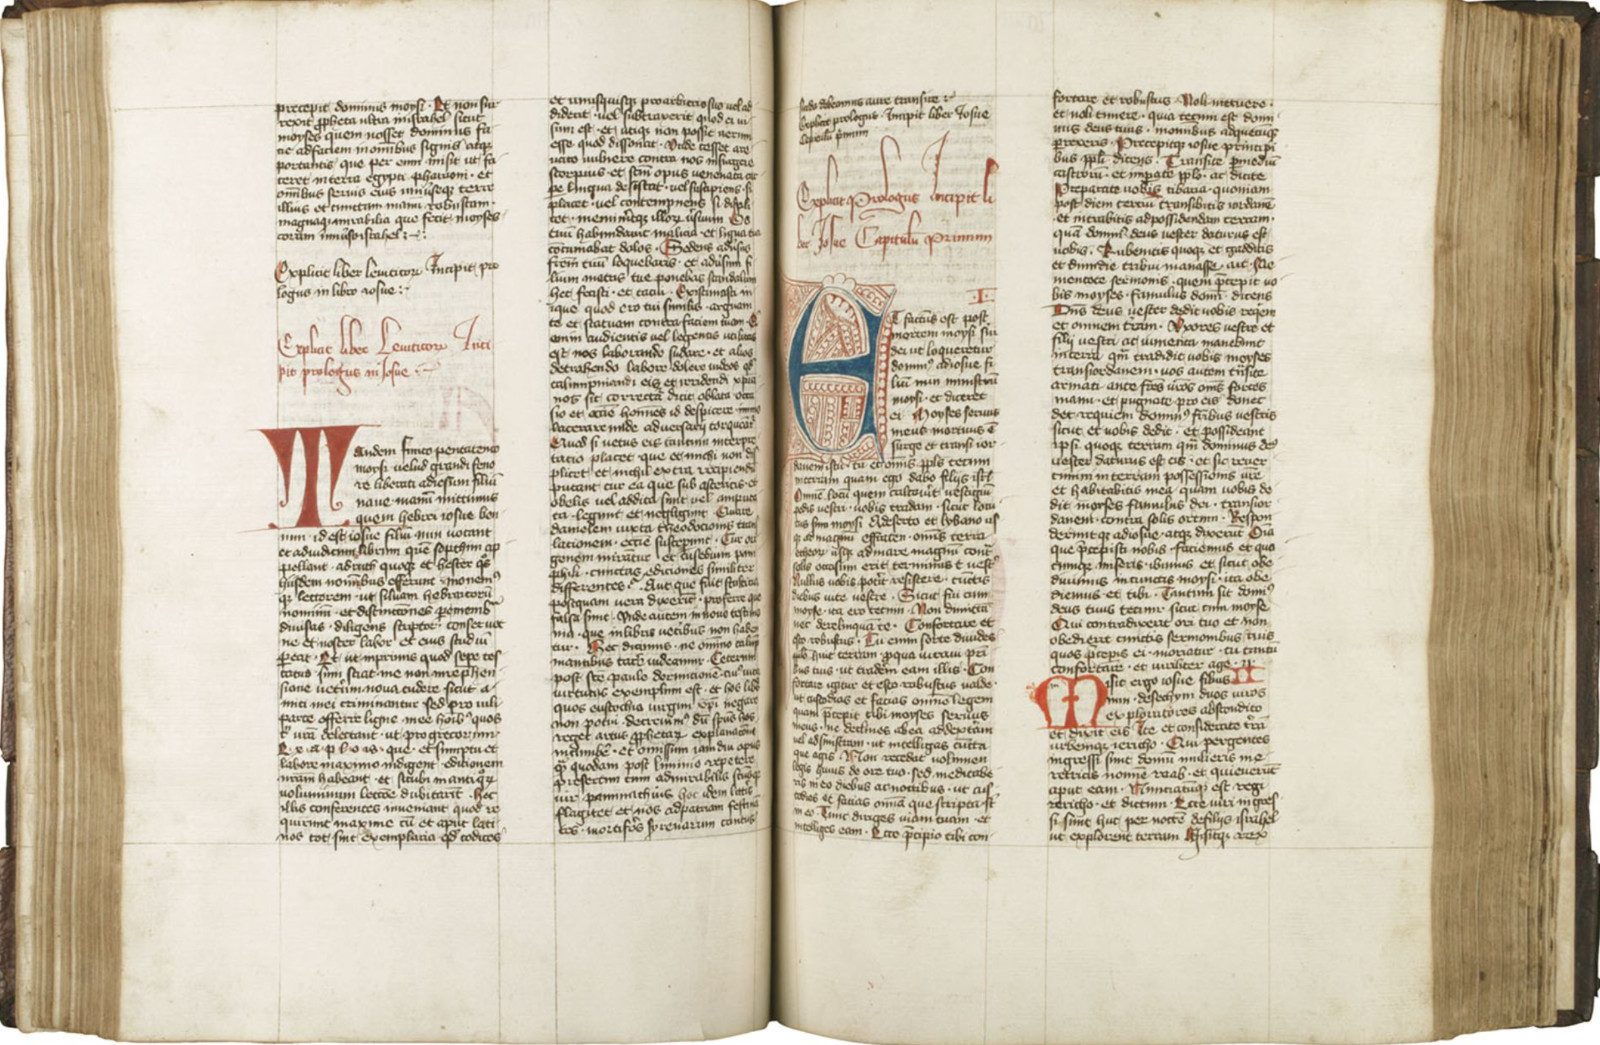 precepit dominus moysi · Et non sur
rexit propheta ultra in israhel sicut
moyses quem nosset dominus fa
cie ad faciem in omnibus signis atque
portentis que per eum misit ut fa
ceret in terra egypti pharaoni · et
omnibus servis eius universeque terre
illius et cunctam manum robustam ·
magnaque mirabilia que fecit moyses
coram universo israhel :~:
Explicit liber leuiticorum Incipit pro
logus in libro iosue :·
Explicit liber Leuiticorum Inci
pit prologus in Josue :~
Tandem finito pentateuco
moysi · velud grandi feno
re liberati ad iesum filium
naue manum mittimus
quem hebrei iosue ben
nun · id est iosue filium nun vocant
et ad iudicum librum quem sopthim ap
pellant · ad ruth quoque et hester quos
hisdem nominibus efferunt · monemusque
lectorem ut silvam hebraicorum
nominum · et distinctiones per membra
divisas · diligens scriptor conservet
ne et noster labor et eius studium
pereat · Et ut in primis quod sepe tes
tatus sum sciat me non in reprehen
sione veterum nova cudere sicut a
mici mei criminantur sed pro virili
parte offerre lingue mee hominibus quos
tamen nostra delectant · ut pro grecorum
que · et sumptu et
labore maximo indigent · editionem
nostram habeant · et sicubi in antiquorum
voluminum lectione dubitarint · hec
illis conferentes inveniant quod re
quirunt maxime cum et aput lati
nos tot sint exemplaria quod codices
et unusquisque pro arbitrio suo vel ad
diderit · vel subtraxerit quod ei vi
sum est · et utique non possit verum
esse quod dissonat · Unde cesset ar
cuato vulnere contra nos insurgere
scorpius · et sanctum opus venenata car
pere lingua desistat · vel suscipiens si
placet · vel contempnens si displi
cet · memineritque illorum versuum Os
tuum habundavit malicia · et lingua tua
concinnabat dolos · Sedens adversus
fratrem tuum loquebaris · et adversum fi
lium matris tue ponebas scandalum
hec fecisti · et tacui · Existimasti in
ique quod ero tui similis · arguam
te et statuam contra faciem tuam ·
enim audientis vel legentis utilitas
est nos laborando sudare · et alios
detrahendo laborare dolere iudeos quod
calumpniandi eis et irridendi
nos sit
ecclesie homines id despicere immo
lacerare unde adversarii torqueantur
Quod si vetus eis tantum interpre
tatio placet · que et michi non dis
plicet · et nichil extra recipiendum
putant cur ea que sub astericis · et
obelis vel addita sunt vel amputa
ta · legunt et negligunt · Quare
danielem iuxta theodocionis trans
lationem · ecclesie susceperunt · Cur ori
genem mirantur · et eusebium pam
phili · cunctas ediciones similiter
differentes · Aut que fuit stulticia
postquam vera dixerint · proferre que
falsa sunt · Unde autem in novo testamento
· que in libris veteribus non haben
tur · Hec dicimus · ne omnino calump
niantibus tacere videamur · Ceterum
post sancte paule dormicionem · cuius vita
virtutis exemplum est · et hos libros
quos eustochio virgini christi negare
non potui decrevimus dum spiritus hos
reget artus prophetarum explanacioni
incumbere · et omissum iam diu opus
quodam post liminio repetere
presertim cum admirabilis sanctusque
vir pammachius hoc idem litteris
flagitet et nos ad patriam festinan
tes · mortiferos syrenarum cantus
surda debeamus aure transire
Explicit prologus · Incipit liber Josue
Capitulum primum
Explicit Prologus Incipit li
ber Josue Capitulum Primum
·I·
Et factum est post
mortem moysi ser
vi dei ut loqueretur
dominus ad iosue fi
lium nun ministrum
moysi · et diceret
ei · Moyses servus
meus mortuus est
surge et transi ior
danem istum · tu et omnis populus tecum
in terram quam ego dabo filiis israel
Omnem locum quem calcaverit vestigium
pedis vestri · vobis tradam · sicut locu
tus sum moysi · A deserto et lybano us
que ad magnum eufraten · omnis terra
etheorum usque ad mare magnum contra
solis occasum erit terminus vester
Nullus vobis poterit resistere · cunctis
diebus vite vestre · Sicut fui cum
moyse · ita ero tecum · Non dimittam
nec derelinquam te · Confortare et
esto robustus · Tu enim sorte divides
populo huic terram · pro qua iuravi patri
bus tuis · ut traderem eam illis · Con
fortare igitur et esto robustus valde ·
ut custodias et facias omnem legem
quam precepit tibi moyses servus
meus · ne declines ab ea ad dextram
vel ad sinistram · ut intelligas cuncta
que agis · Non recedat volumen
legis huius de ore tuo · sed meditabe
ris in eo diebus ac noctibus · ut cus
todias et facias omnia que scripta sunt
in eo · Tunc diriges viam tuam · et
intelliges eam · Ecce precipio tibi con
fortare et robustus · Noli metuere ·
et noli timere · quia tecum est domi
nus deus tuus · in omnibus ad quecumque
perrexeris · Precepitque iosue principi
bus populi dicens · Transite per medium
castrorum · et imperate populo · ac dicite
Preparate vobis cibaria · quoniam
post diem tercium transibitis iordanem
et intrabitis ad possidendam terram ·
quam dominus deus vester daturus est
vobis · Rubenitis quoque et gadditis
et dimidie tribui manasse · ait · Me
mentote sermonis · quem precepit vo
bis moyses · famulus domini · dicens
Dominus deus vester dedit vobis requiem
et omnem terram · Uxores vestre et
filii vestri ac iumenta manebunt
in terra quam tradidit vobis moyses
trans iordanem · vos autem transite
armati · ante fratres vestros omnes fortes
manu · et pugnate pro eis donec
det requiem dominus fratribus vestris
sicut et vobis dedit · et possideant
ipsi quoque terram quam dominus deus
vester daturus est eis · et sic rever
timini in terram possessionis vestre
et habitabitis in ea · quam vobis de
dit moyses famulus dei · trans ior
danem · contra solis ortum · Respon
deruntque ad iosue · atque dixerunt Omnia
que precepisti nobis · faciemus et quo
cumque miseris · ibimus et sicut obe
divimus in cunctis moysi · ita obe
diemus et tibi · Tantum sit dominus
deus tuus tecum sicut cum moyse
Qui contradixerit ori tuo et non
obedierit cunctis sermonibus tuis
quos preceperis ei · moriatur · tu tantum
confortare · et viriliter age · II ·
Misit ergo iosue filius
nun · de sethym duos viros
exploratores abscondito
et dixit eis Ite et considerate terram
urbemque iericho · Qui pergentes
ingressi sunt domum mulieris me
retricis nomine raab · et quieverunt
aput eam · Nunciatumque est regi
iericho · et dictum · Ecce viri ingres
si sunt huc per noctem de filiis israhel
ut explorent terram Misitque rex